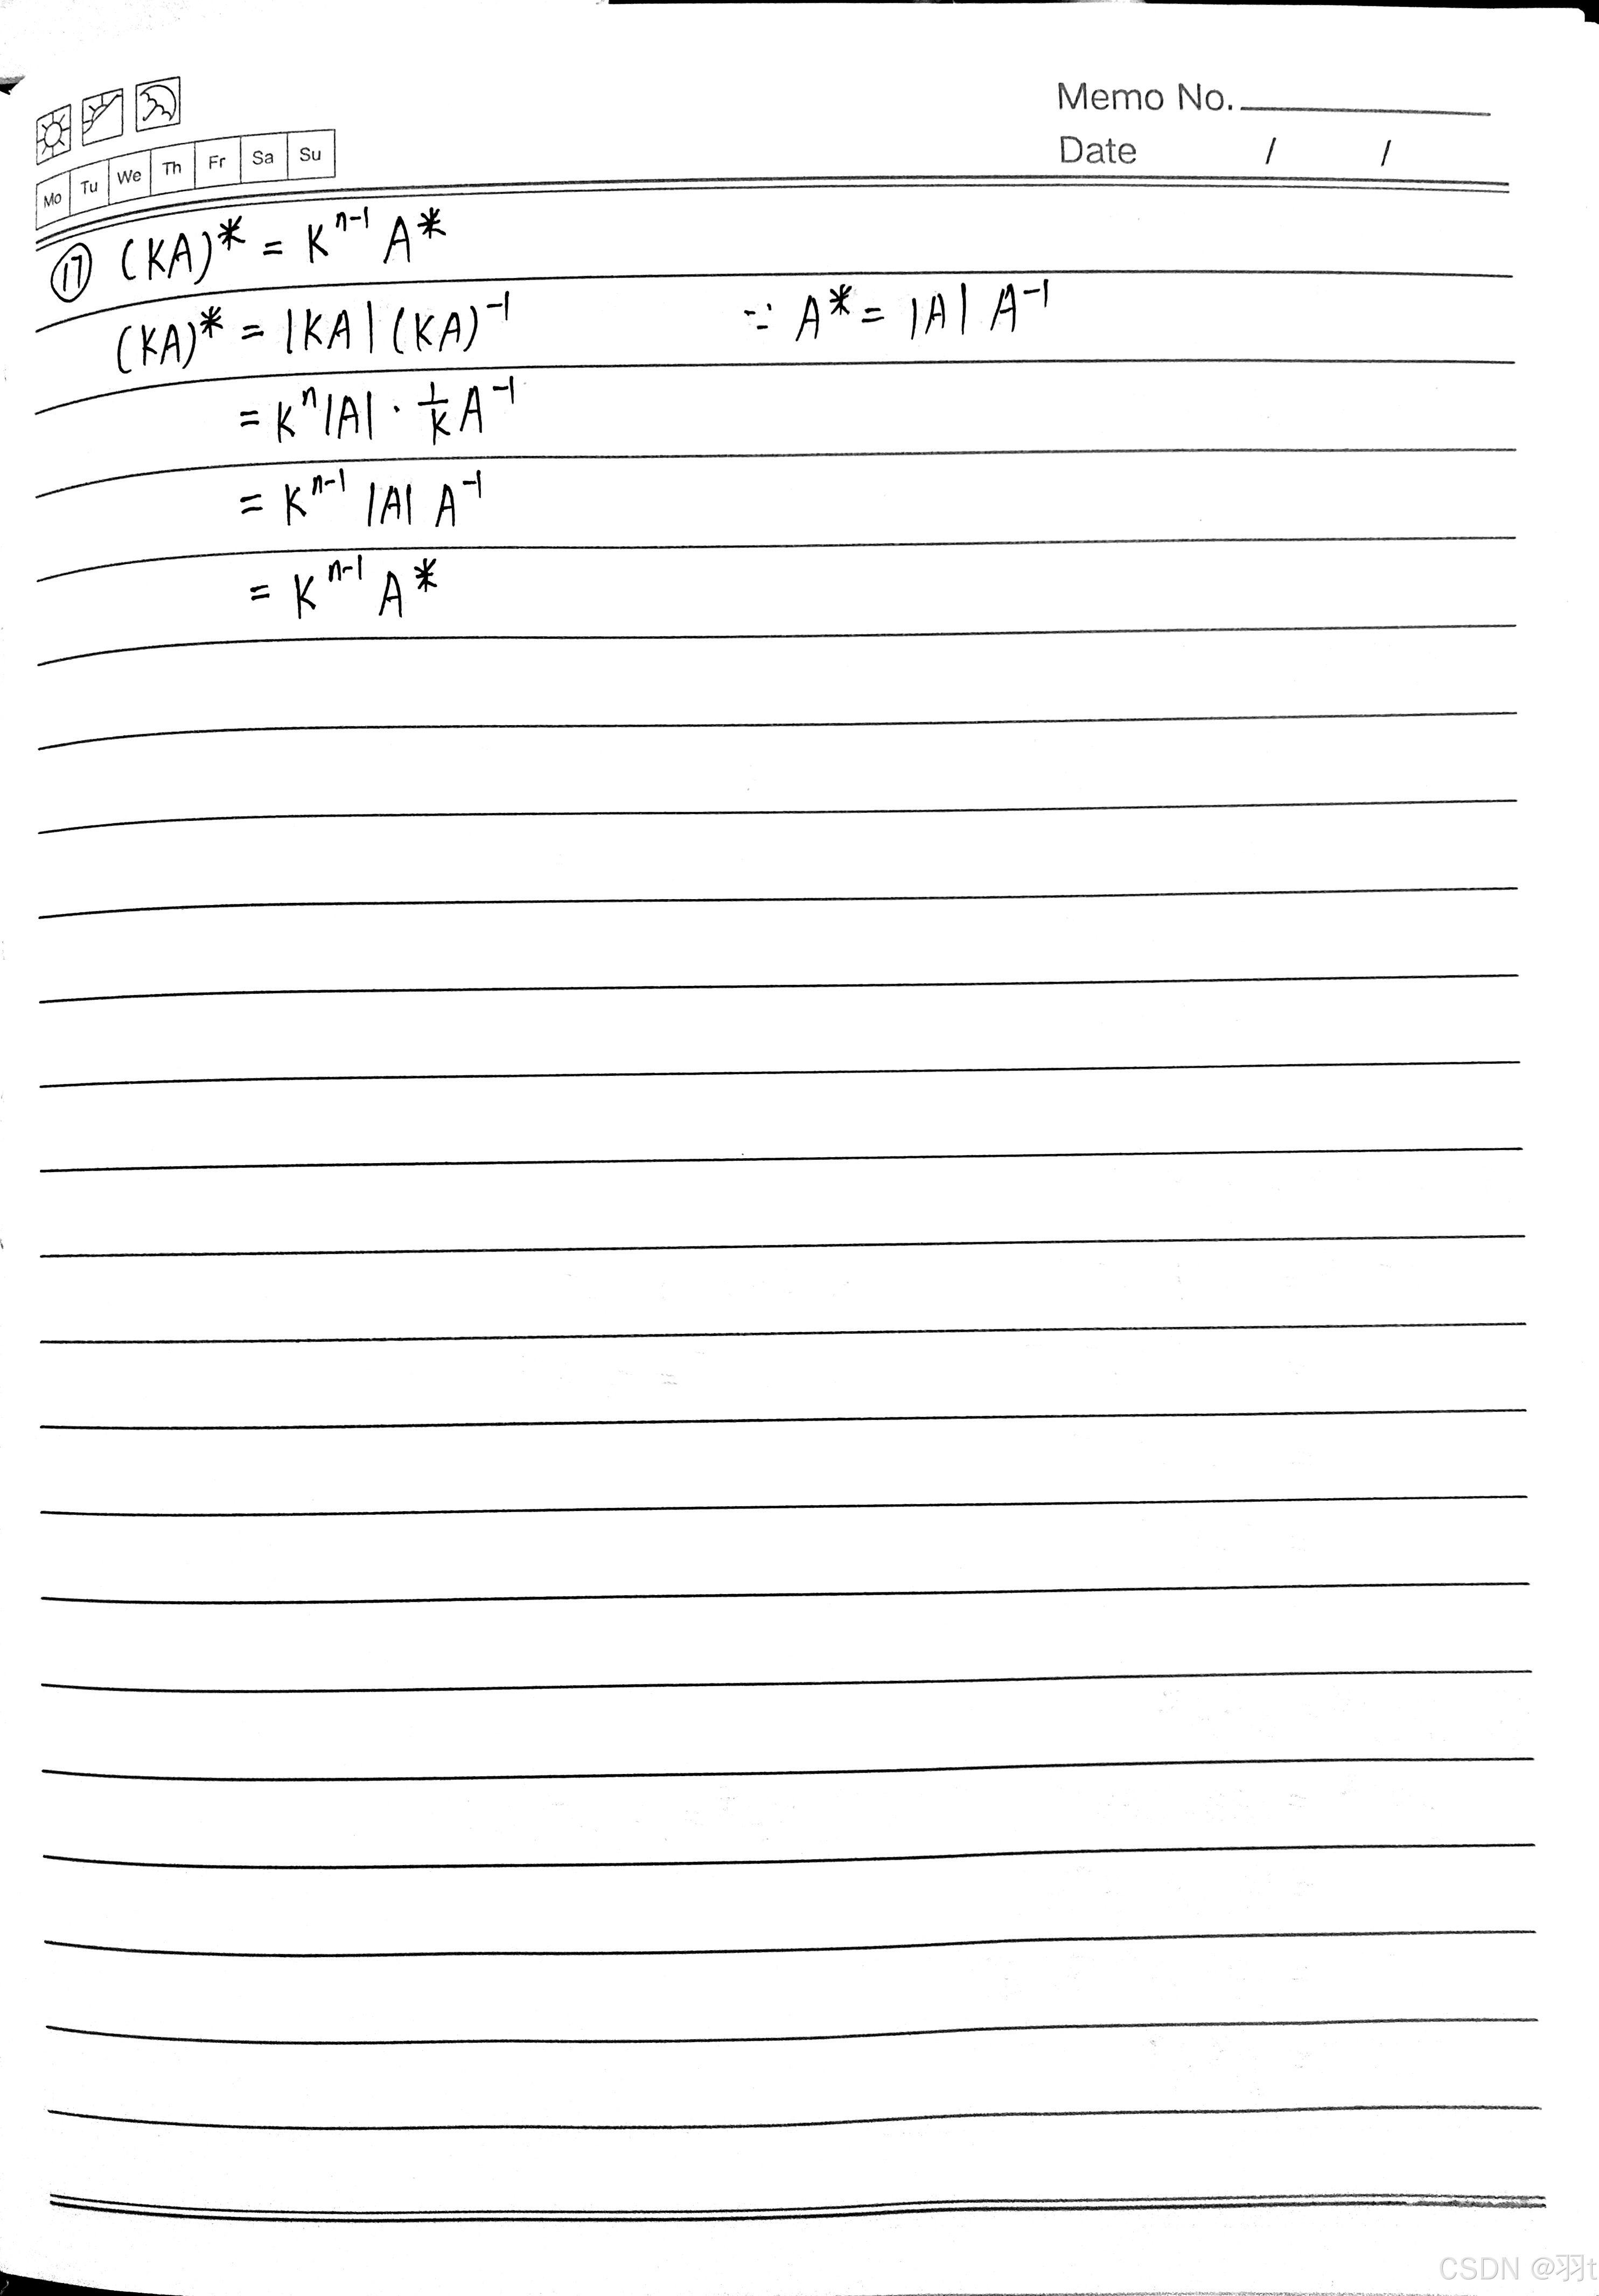 Memo No.
Date / /
Mo Tu We Th Fr Sa Su
⑰ (KA)* = K^{n-1} A*
(KA)* = |KA| (KA)^{-1} ∵ A* = |A| A^{-1}
= K^n |A| · \frac{1}{K} A^{-1}
= K^{n-1} |A| A^{-1}
= K^{n-1} A*
CSDN @羽t